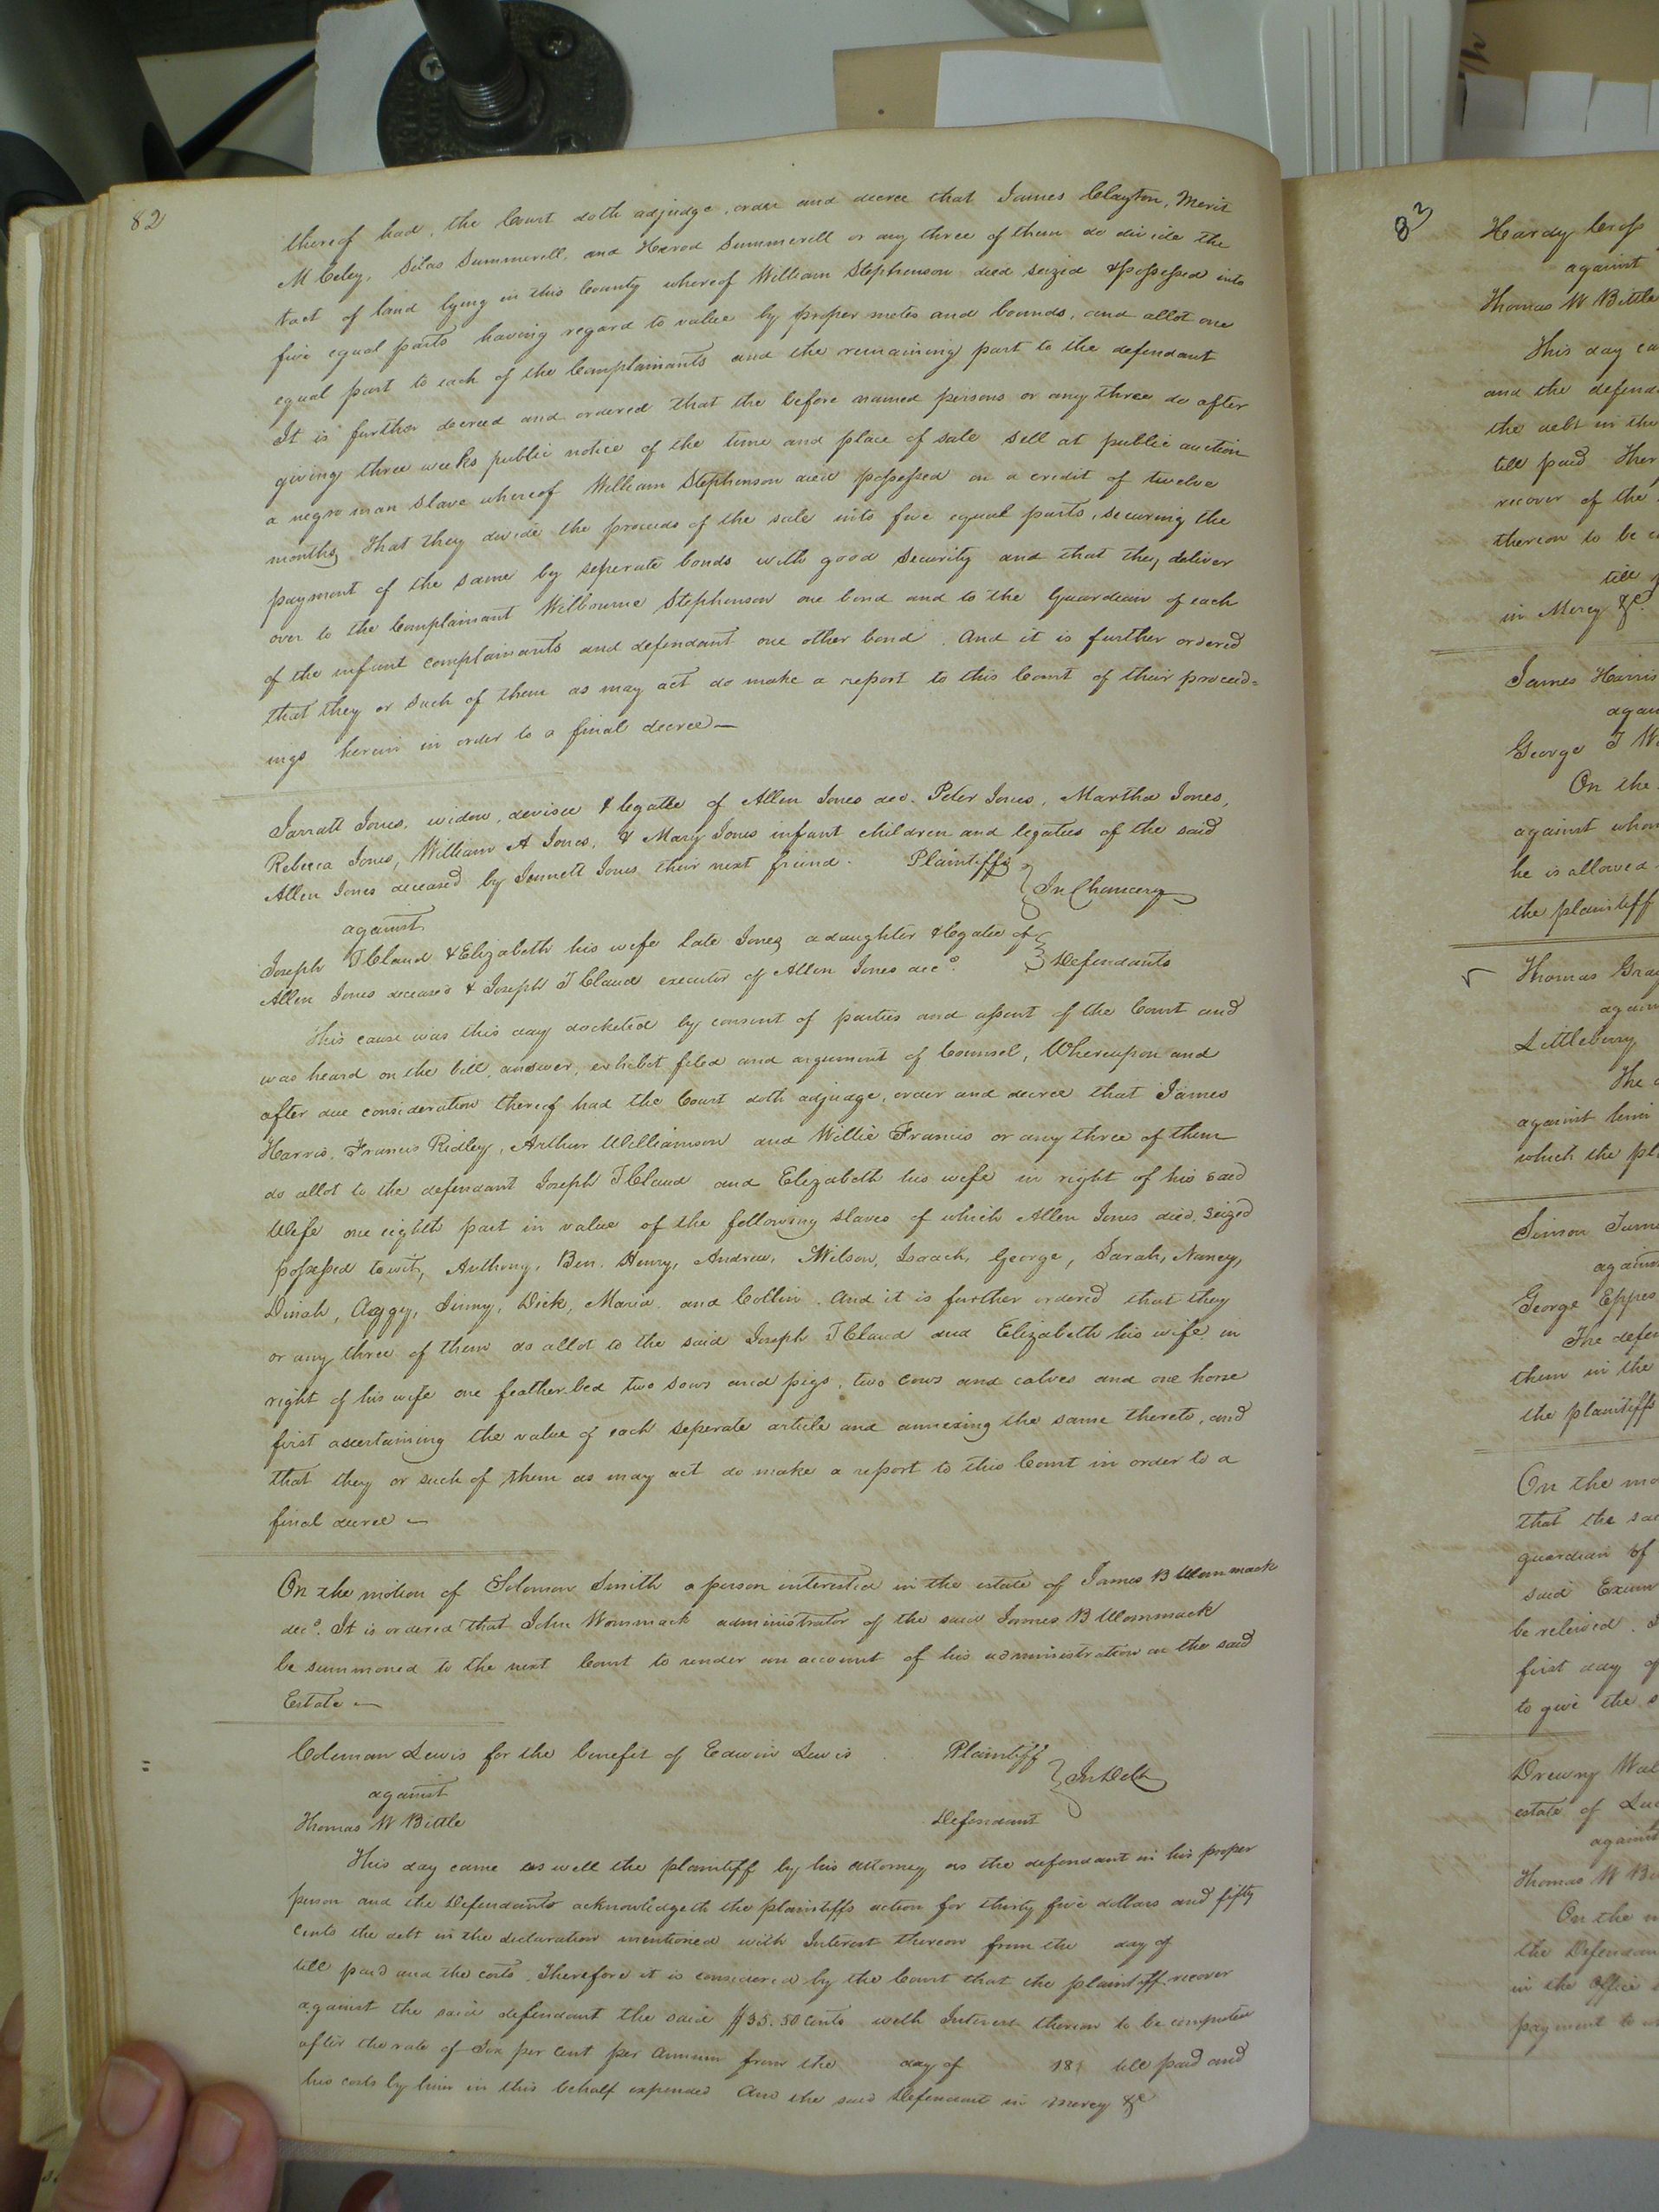 82
thereof had, the Court doth adjudge, order and decree that James Clayton, Merit
M Celey, Silas Summerell, and Herod Summerell or any three of them do divide the
tract of land lying in this County whereof William Stephenson died seized & possessed into
five equal parts having regard to value by proper metes and bounds, and allot one
equal part to each of the Complainants and the remaining part to the defendant
It is further decreed and ordered that the before named persons or any three do after
giving three weeks public notice of the time and place of sale sell at public auction
a negro man slave whereof William Stephenson died possessed on a credit of twelve
months, that they divide the proceeds of the sale into five equal parts, securing the
payment of the same by seperate bonds with good security and that they deliver
over to the Complainant Wilbourne Stephenson one bond and to the Guardian of each
of the infant complainants and defendant one other bond. And it is further ordered
that they or such of them as may act do make a report to this Court of their proceed=
ings herein in order to a final decree—
Jarratt Jones, widow, devisee & legatee of Allen Jones dec. Peter Jones, Martha Jones,
Rebecca Jones, William A Jones, & Mary Jones infant children and legatees of the said
Allen Jones deceased by Jennett Jones their next friend. Plaintiffs
In Chancery
against
Joseph T Claud & Elizabeth his wife late Jones a daughter & legatee of
Allen Jones deceased & Joseph T Claud executor of Allen Jones decd. Defendants
This cause was this day docketed by consent of parties and assent of the Court and
was heard on the bill, answer, exhibit filed and argument of Counsel, Whereupon and
after due consideration thereof had the Court doth adjudge, order and decree that James
Harris, Francis Ridley, Arthur Williamson and Willie Francis or any three of them
do allot to the defendant Joseph T Claud and Elizabeth his wife in right of his said
Wife one eighth part in value of the following slaves of which Allen Jones died, seized
possessed towit, Anthony, Ben, Henry, Andrew, Wilson, Isaach, George, Sarah, Nancy,
Dinah, Aggy, Jinny, Dick, Maria, and Collin. And it is further ordered that they
or any three of them do allot to the said Joseph T Claud and Elizabeth his wife in
right of his wife one feather bed two sows and pigs, two cows and calves and one horse
first ascertaining the value of each seperate article and annexing the same thereto, and
that they or such of them as may act do make a report to this Court in order to a
final decree —
On the motion of Solomon Smith a person interested in the estate of James B Wommack
decd. It is ordered that John Wommack administrator of the said James B Wommack
be summoned to the next Court to render an account of his administration on the said
Estate —
Coleman Lewis for the benefit of Edwin Lewis. Plaintiff
In Debt
against
Thomas W Bittle Defendant
This day came as well the plaintiff by his attorney as the defendant in his proper
person and the Defendants acknowledgeth the plaintiffs action for thirty five dollars and fifty
cents the debt in the declaration mentioned with Interest thereon from the day of
till paid and the costs. Therefore it is considered by the Court that the plaintiff recover
against the said defendant the said $35.50 Cents with Interest thereon to be computed
after the rate of Six per Cent per Annum from the day of 181 till paid and
his costs by him in this behalf expended And the said Defendant in Mercy &c
83
Hardy Cross
against
Thomas W Bittle
This day ca
and the defend
the debt in the
till paid Ther
recover of the
thereon to be c
till
in Mercy &c.
James Harris
again
George T W
On the
against whom
he is allowed
the plaintiff
Thomas Gray
again
Littleberry
The d
against him
which the pl
Simon Turn
again
George Eppes
The defen
them in the
the plaintiffs
On the mo
that the sa
guardian of
said Exum
be releived.
first day of
to give the s
Drewry Wal
estate of
against
Thomas W Bi
On the m
the Defendan
in the Office
payment to